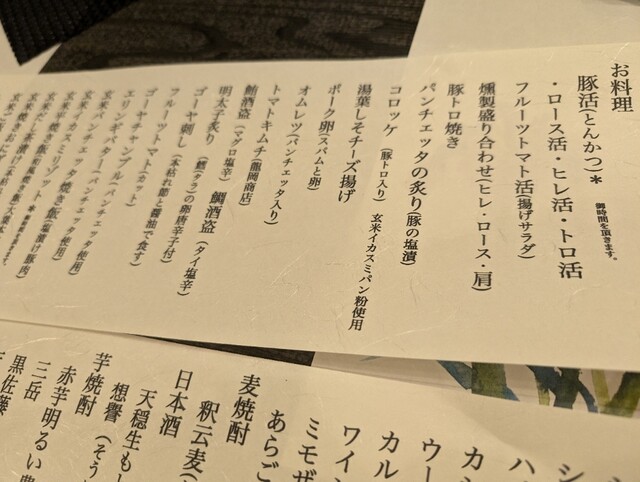 お料理
豚活(とんかつ)* 御時間を頂きます。
・ロース活・ヒレ活・トロ活
フルーツトマト活(揚げサラダ)
燻製盛り合わせ(ヒレ・ロース・肩)
豚トロ焼き
パンチェッタの炙り(豚の塩漬)
コロッケ (豚トロ入り) 玄米イカスミパン粉使用
湯葉しそチーズ揚げ
ポーク卵(スパムと卵)
オムレツ(パンチェッタ入り)
トマトキムチ(龍岡商店)
鮪酒盗(マグロ塩辛) 鯛酒盗(タイ塩辛)
明太子炙り(鱈(タラ)の卵唐辛子付)
ゴーヤ刺し(本枯れ節と醤油で食す)
フルーツトマト(カット)
ゴーヤチャンプル(パンチェッタ使用)
エリンギバター(パンチェッタ使用)
玄米パンチェッタ焼き飯
玄米イカスミリゾット
玄米
玄米
玄米焼きおにぎり
シ
ハ
カシ
ウー
カル
ワイン
ミモザ
あらご
麦焼酎
釈云麦(
日本酒
天穏生も
想譽(そう
芋焼酎
赤芋明るい農
三岳
黒佐藤